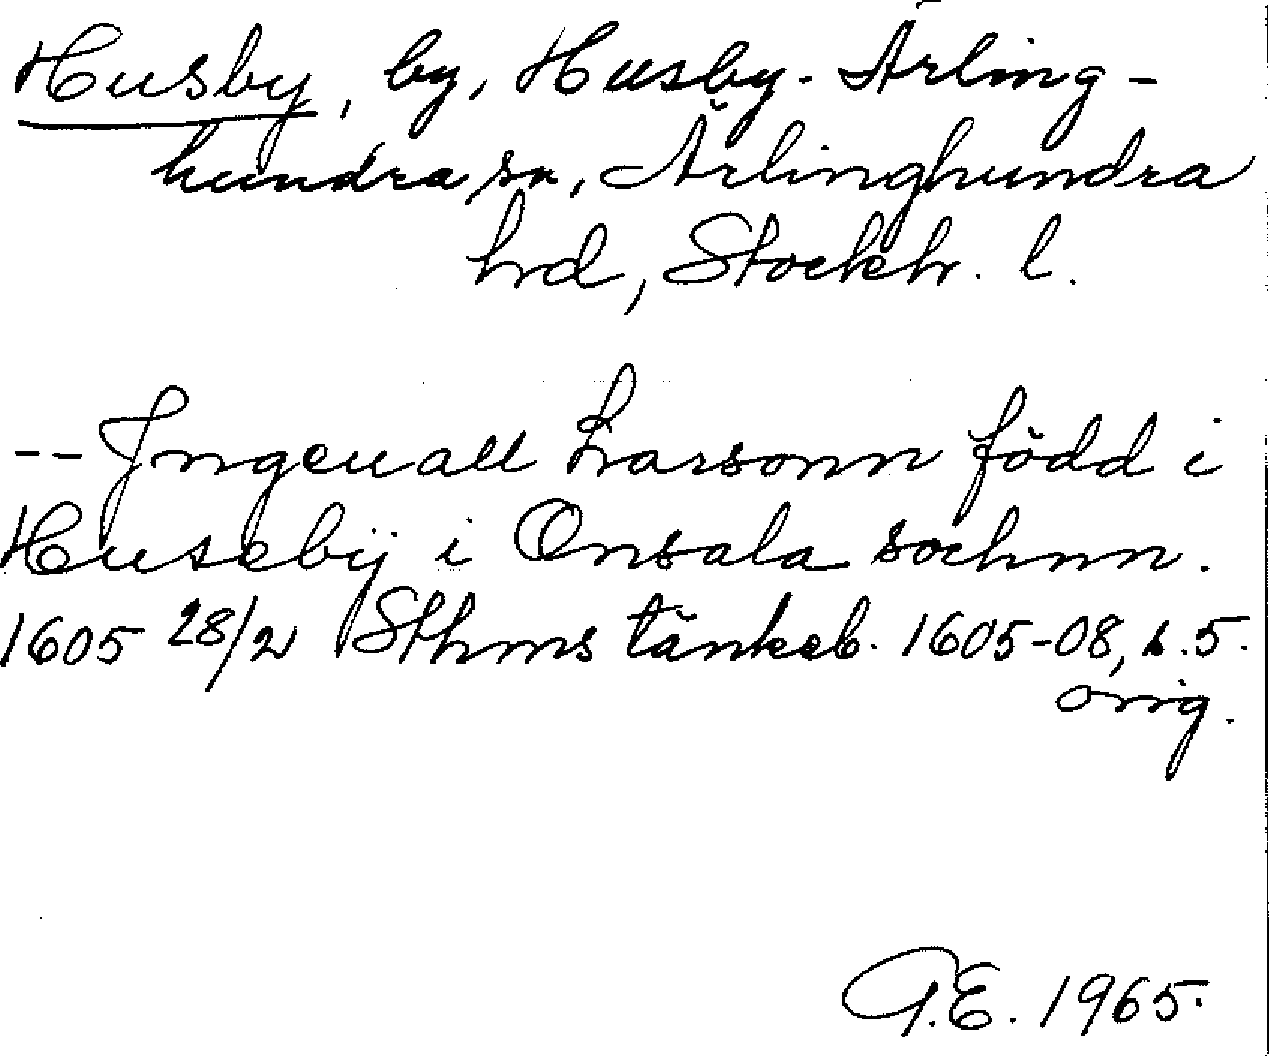 Husby, by, Husby-Ärling-
hundra sn, Ärlinghundra
hrd, Stockh. l.
-- Jngeuall Larsonn född i
Husebÿ i Onsala sochnn.
1605 28/2 Sthms tänkeb. 1605-08, s. 5.
orig.
G.E. 1965.